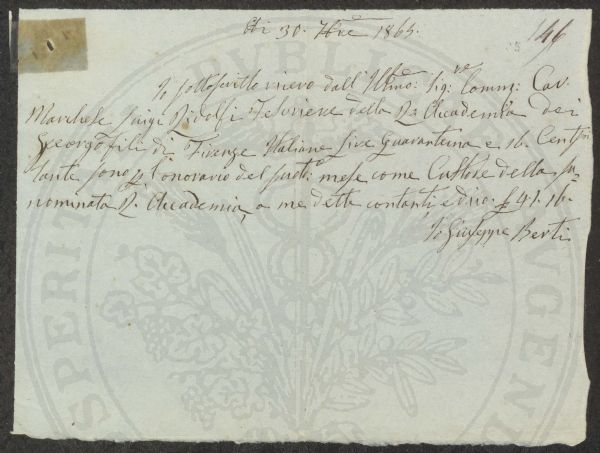 Di 30. 9bre 1865.
146
Io sottoscritto ricevo dall' Illmo: Sig:re Comm: Cav
Marchese Luigi Ridolfi Tesoriere della R. Accademia dei
Georgofili di Firenze Italiane Lire Quarantuna e 16. Cent:mi
tante sono p l'onorario del sud:o mese come Custode della su=
nominata R. Accademia, a me dette contanti, e dico. £ 41. 16.
Io Giuseppe Berti
PROSPERITATI PUBLICAE AUGENDAE